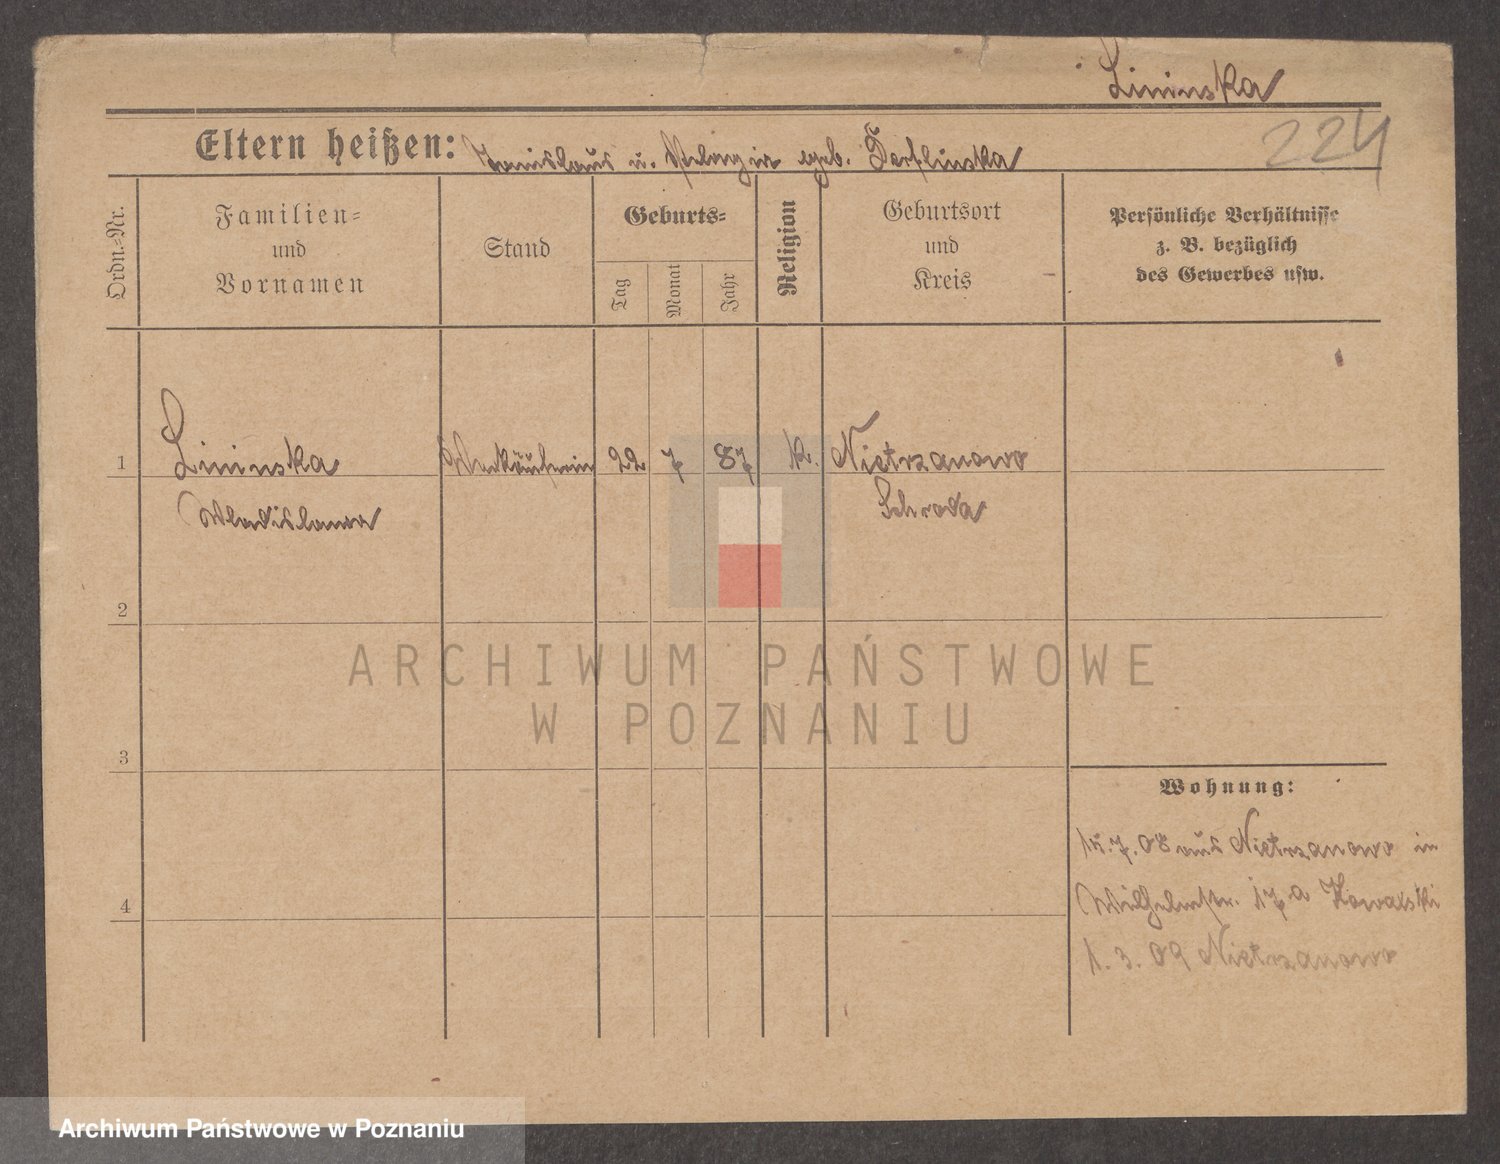 Lininska
224
Eltern heißen: Stanislaus u. Pelagia geb. Derflinska
Ordn.-Nr.
Familien-
und
Vornamen
Stand
Geburts-
Tag
Monat
Jahr
Religion
Geburtsort
und
Kreis
Persönliche Verhältnisse
z. B. bezüglich
des Gewerbes usw.
1 Lininska Verkäuferin 22 7 87 k. Nietrzanowo
Wladislawa Schroda
2
3
4
Wohnung:
15.7.08 aus Nietrzanowo in
Wilhelmstr. 17a Kowalski
1.3.09 Nietrzanowo
ARCHIWUM PAŃSTWOWE
W POZNANIU
Archiwum Państwowe w Poznaniu